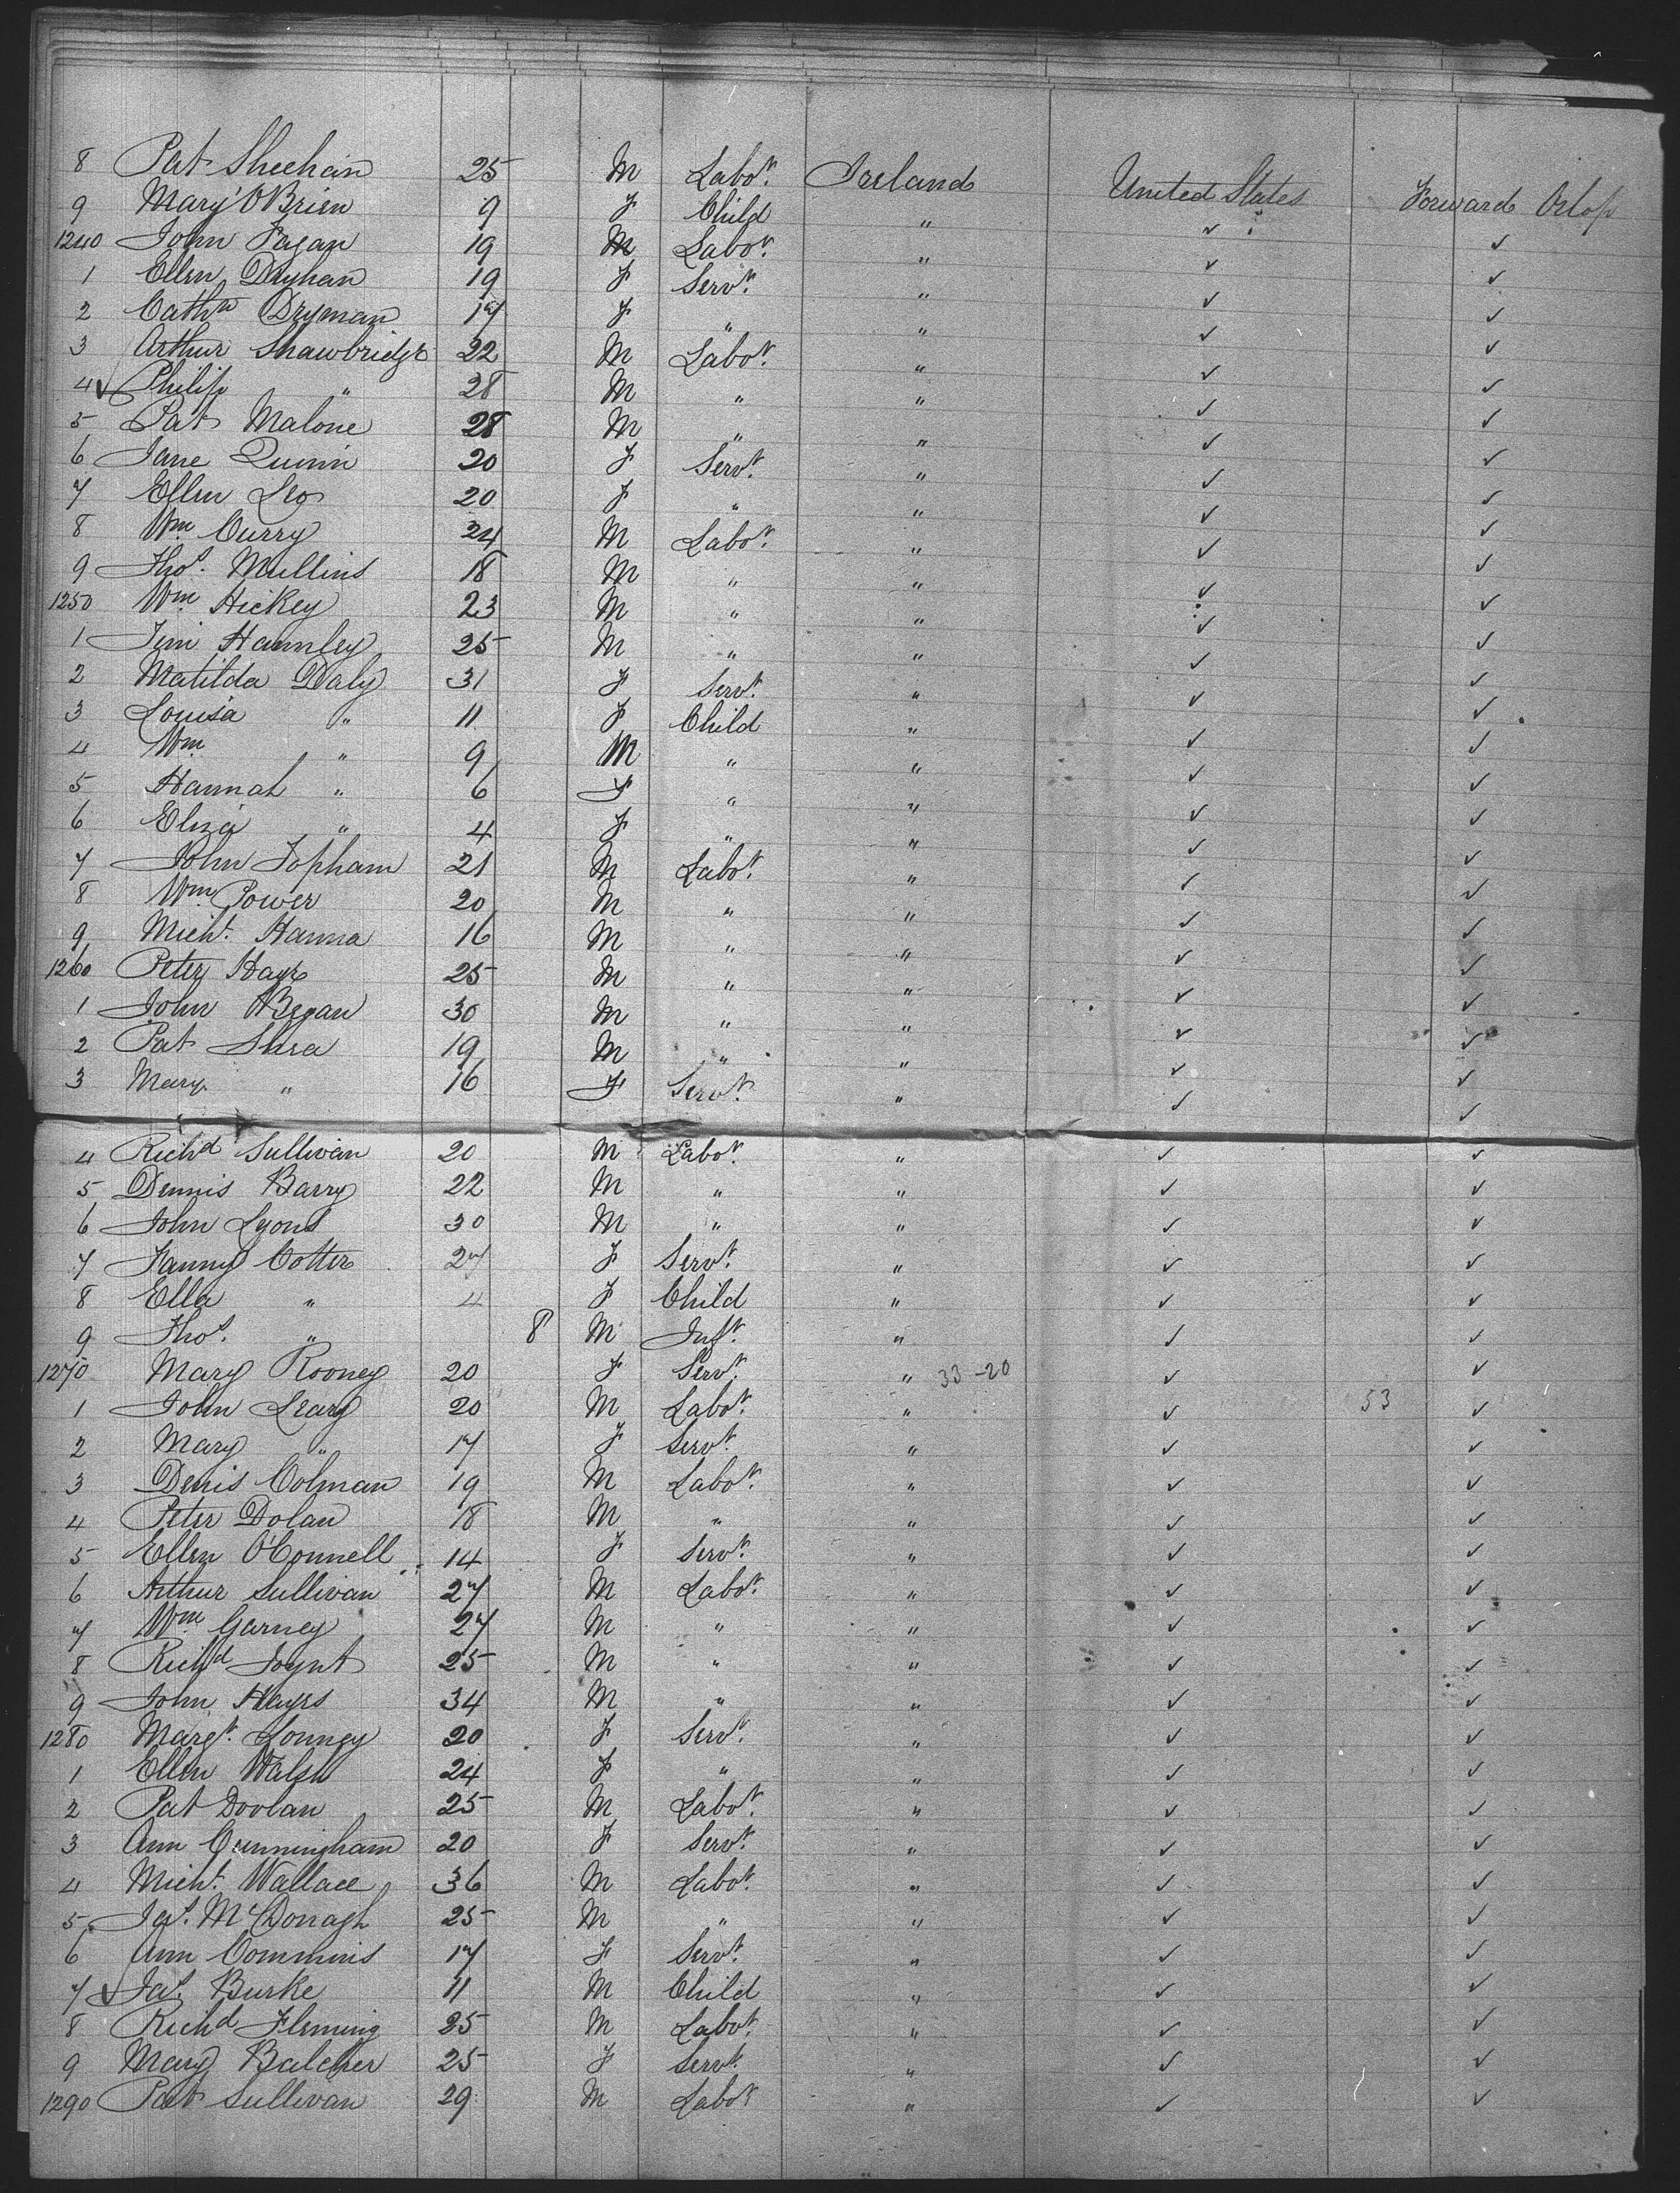 8 Pat Sheehan 25 M Labor. Ireland United States Forward Orlop
9 Mary O'Brien 9 F Child " ✓ ✓
1240 John Fagan 19 M Labor. " ✓ ✓
1 Ellen 19 F Servt. " ✓ ✓
2 Cathn Dryman 17 F " " ✓ ✓
3 Arthur Shawbridge 22 M Labor. " ✓ ✓
4 ✓ Philip " 28 M " " ✓ ✓
5 Pat Malone 28 M " " ✓ ✓
6 Jane Quinn 20 F Servt. " ✓ ✓
7 Ellen Leo 20 F " " ✓ ✓
8 Wm Curry 24 M Labor. " ✓ ✓
9 Thos. Mullins 18 M " " ✓ ✓
1250 Wm Hickey 23 M " " ✓ ✓
1 Jim Hannley 25 M " " ✓ ✓
2 Matilda Daly 31 F Servt. " ✓ ✓
3 Louisa " 11 F Child " ✓ ✓
4 Wm " 9 M " " ✓ ✓
5 Hannah " 6 F " " ✓ ✓
6 Eliza " 4 F " " ✓ ✓
7 John Topham 21 M Labor. " ✓ ✓
8 Wm Power 20 M " " ✓ ✓
9 Michl. Hanna 16 M " " ✓ ✓
1260 Peter Hays 25 M " " ✓ ✓
1 John 30 M " " ✓ ✓
2 Pat Shea 19 M " " ✓ ✓
3 Mary " 16 F Servt. " ✓ ✓
4 Richd Sullivan 20 M Labor. " ✓ ✓
5 Dennis Barry 22 M " " ✓ ✓
6 John Lyons 30 M " " ✓ ✓
7 Fanny Cotter 27 F Servt. " ✓ ✓
8 Ella " 4 F Child " ✓ ✓
9 Thos. " 8 M Inft. " ✓ ✓
1270 Mary Rooney 20 F Servt. " 33-20 ✓ ✓
1 John Leary 20 M Labor. " ✓ 53 ✓
2 Mary " 17 F Servt. " ✓ ✓
3 Denis Colman 19 M Labor. " ✓ ✓
4 Peter Dolan 18 M " " ✓ ✓
5 Ellen O'Connell 14 F Servt. " ✓ ✓
6 Arthur Sullivan 27 M Labor. " ✓ ✓
7 Wm Garney 27 M " " ✓ ✓
8 Richd Joynt 25 M " " ✓ ✓
9 John Hayes 34 M " " ✓ ✓
1280 Margt. Lonney 20 F Servt. " ✓ ✓
1 Ellen Walsh 24 F " " ✓ ✓
2 Pat Doolan 25 M Labor. " ✓ ✓
3 Ann Cunningham 20 F Servt. " ✓ ✓
4 Michl. Wallace 36 M Labor. " ✓ ✓
5 Jas. McDonagh 25 M " " ✓ ✓
6 Ann Commins 17 F Servt. " ✓ ✓
7 ✓ Jas. Burke 11 M Child " ✓ ✓
8 Richd Fleming 25 M Labor. " ✓ ✓
9 Mary Balcher 25 F Servt. " ✓ ✓
1290 Pat Sullivan 29 M Labor " ✓ ✓